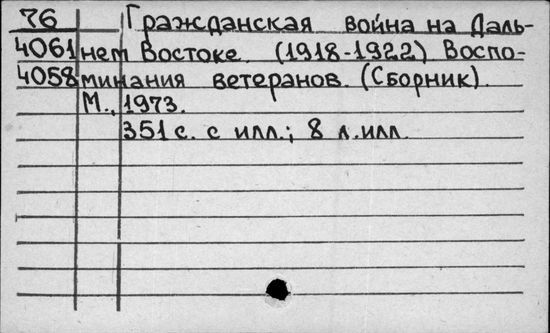 76 Гражданская война на Даль-
4061 нем Востоке. (1918-1922) Воспо-
4058 минания ветеранов. (Сборник).
М., 1973.
351 с. с илл.; 8 л. илл.